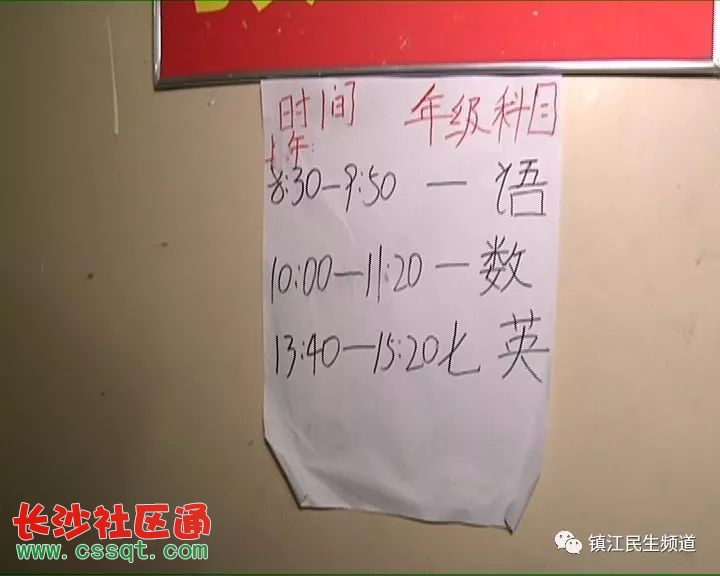 时间 年级科目
上午:
8:30-9:50 一 语
10:00-11:20 一 数
13:40-15:20 七 英
长沙社区通
www.cssqt.com
镇江民生频道